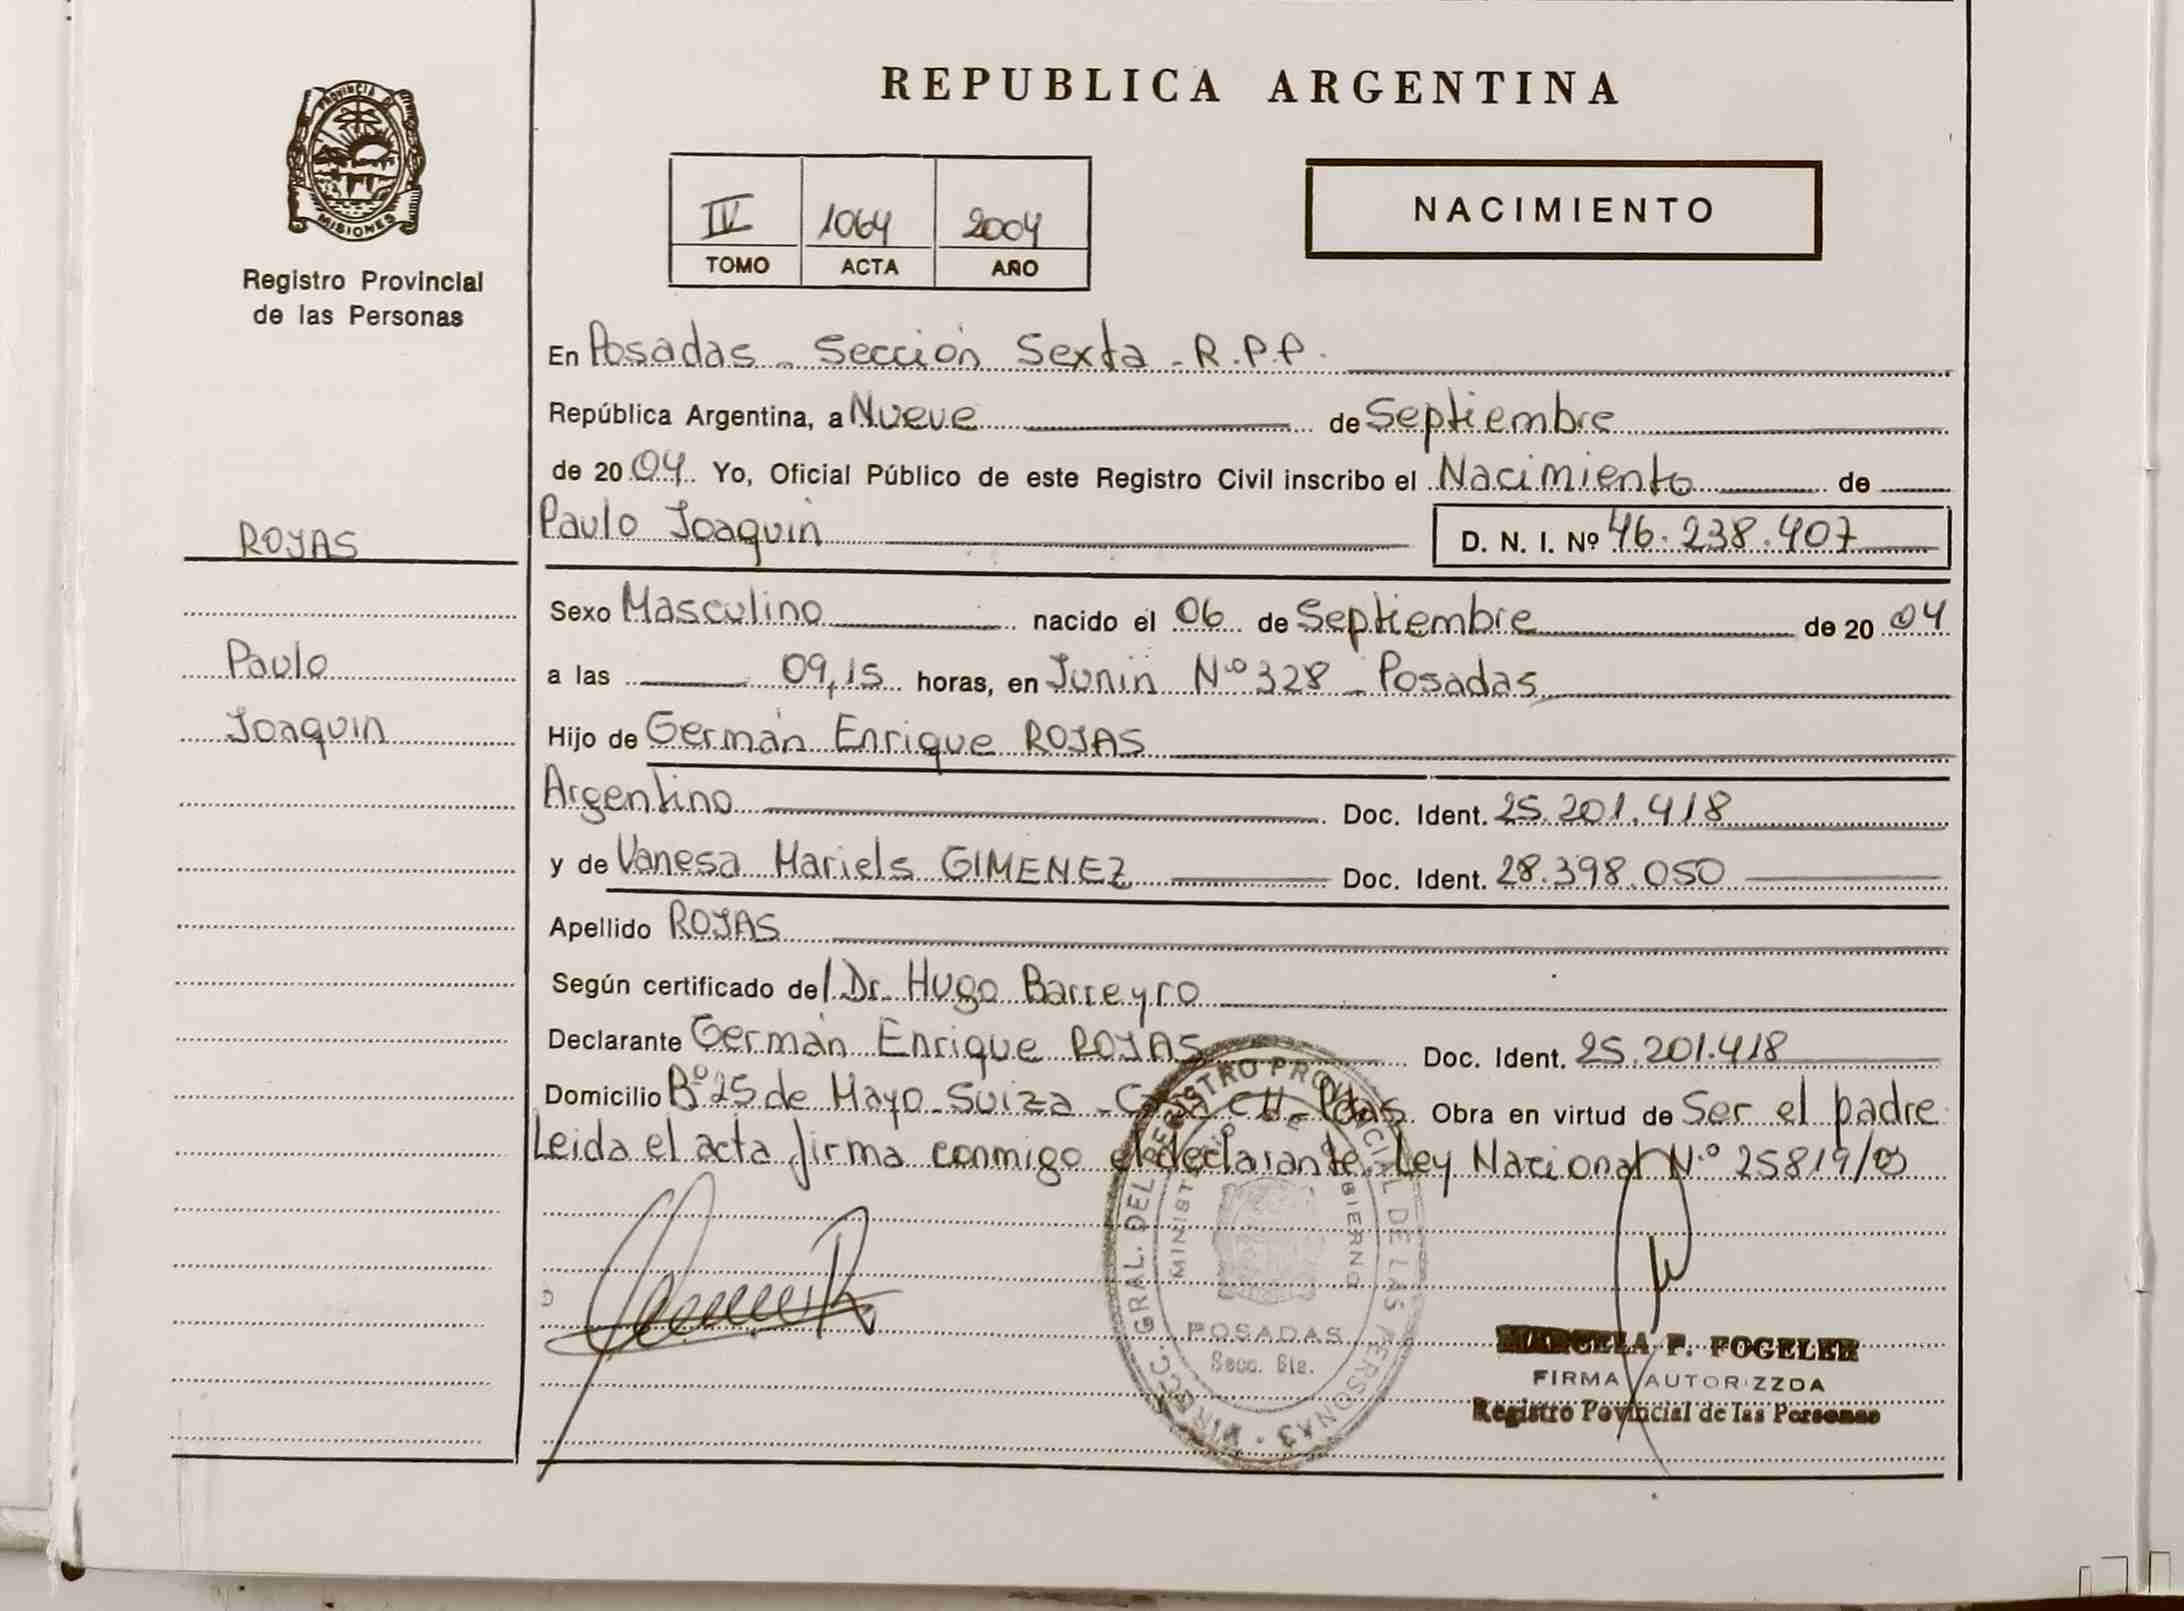 REPUBLICA ARGENTINA
PROVINCIA DE
MISIONES
Registro Provincial
de las Personas
IV 1064 2004
TOMO ACTA AÑO
NACIMIENTO
En Posadas - Sección Sexta - R.P.P.
República Argentina, a Nueve de Septiembre
de 2004 Yo, Oficial Público de este Registro Civil inscribo el Nacimiento de
Paulo Joaquín D. N. I. Nº 46.238.407
ROJAS
Paulo
Joaquín
Sexo Masculino nacido el 06 de Septiembre de 2004
a las 09,15 horas, en Junín Nº 328 - Posadas
Hijo de Germán Enrique ROJAS
Argentino Doc. Ident. 25.201.418
y de Vanesa Mariels GIMENEZ Doc. Ident. 28.398.050
Apellido ROJAS
Según certificado del Dr. Hugo Barreyro
Declarante Germán Enrique ROJAS Doc. Ident. 25.201.418
Domicilio Bº 25 de Mayo - Suiza - Casa - Pdas. Obra en virtud de Ser el padre
Leida el acta firma conmigo el declarante. Ley Nacional Nº 25819/03
DIRECC. GRAL. DEL REGISTRO PROVINCIAL DE LAS PERSONAS
MINISTERIO DE GOBIERNO
POSADAS
Secc. 6ta.
MARCELA F. FOGELER
FIRMA AUTORIZZDA
Registro Povincial de las Personas